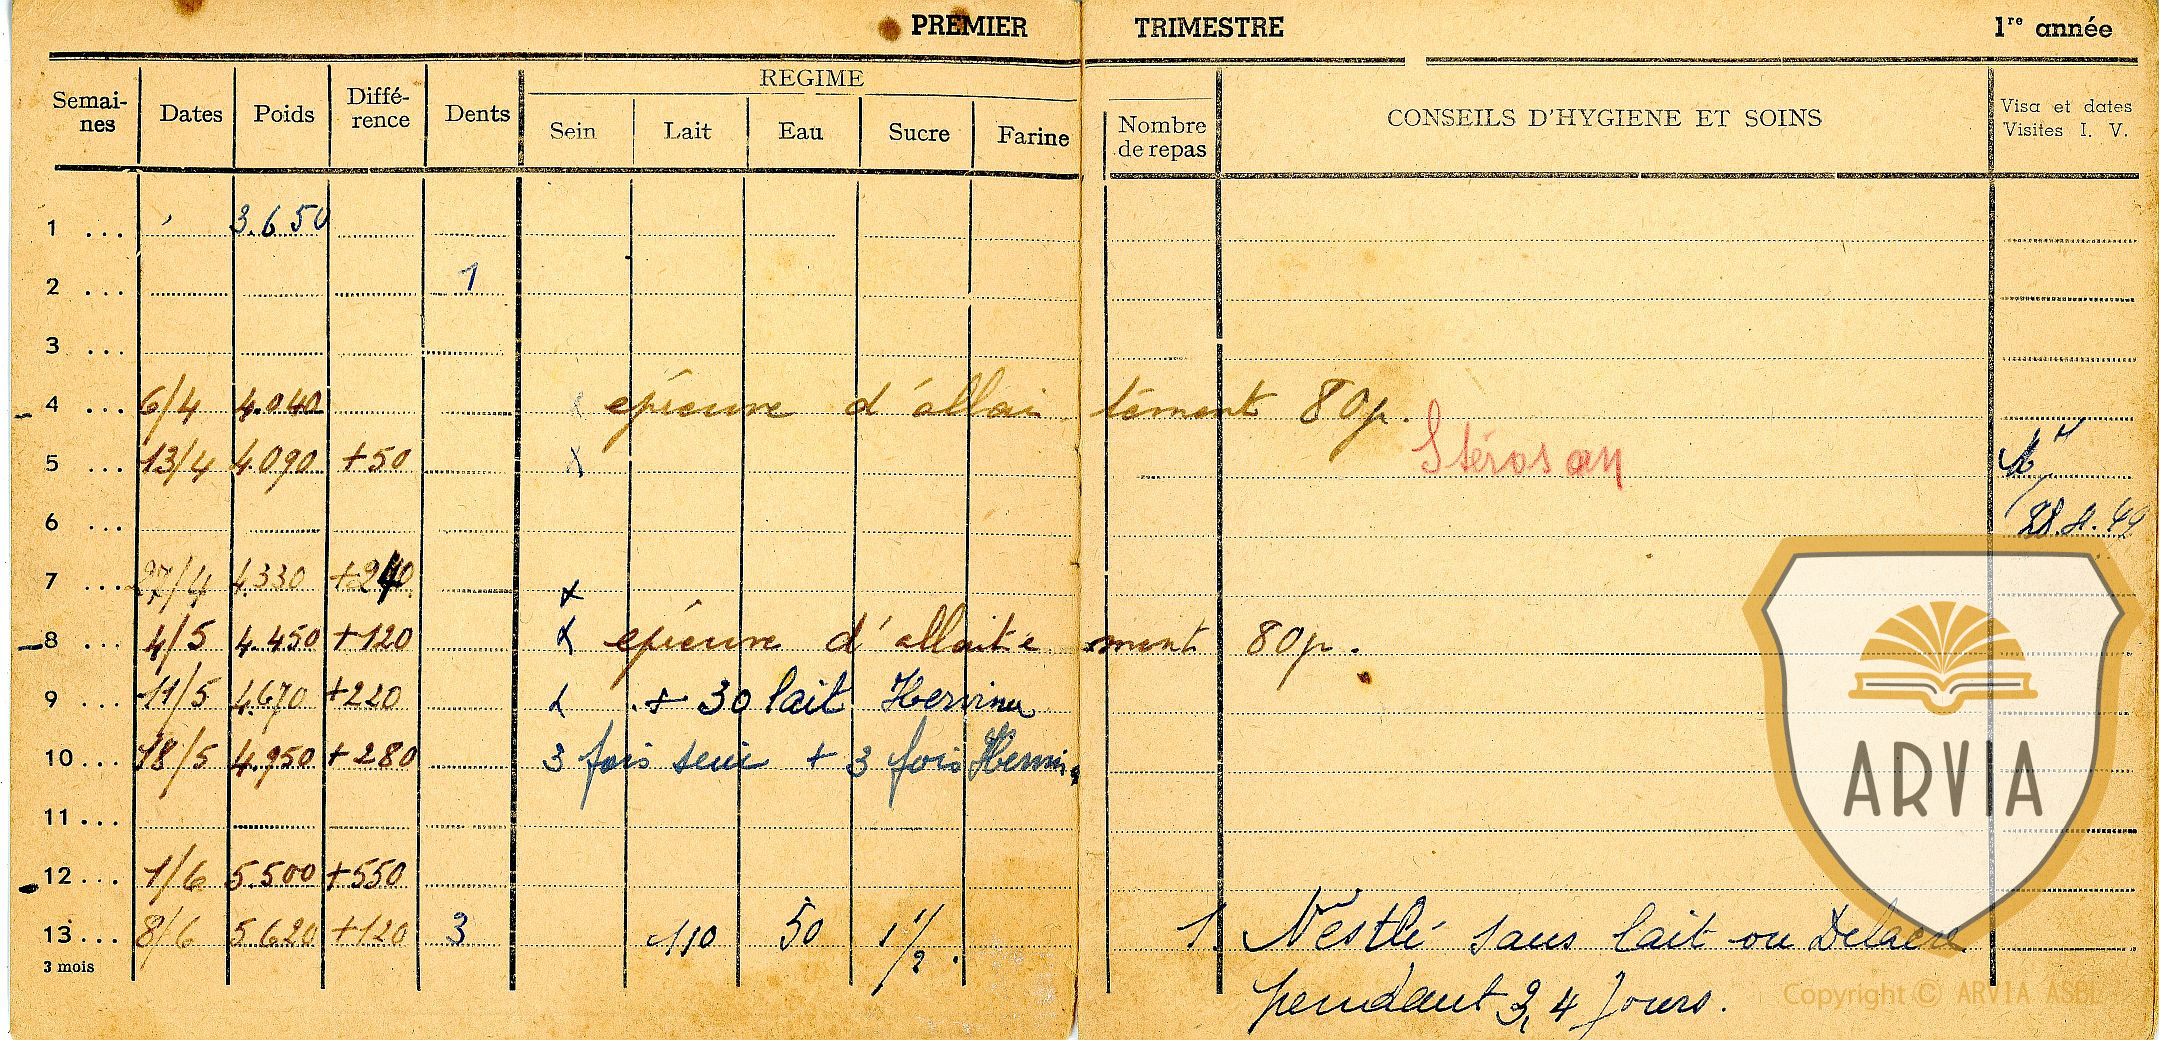 PREMIER TRIMESTRE 1re année
REGIME
Semai-nes Dates Poids Diffé-rence Dents Sein Lait Eau Sucre Farine Nombre de repas CONSEILS D'HYGIENE ET SOINS Visa et dates Visites I. V.
1 ... 3.650
2 ... 1
3 ...
4 ... 6/4 4.040 x épreuve d'allai tement 80p.
5 ... 13/4 4.090 +50 x Stérosan
6 ... 28.4.49
7 ... 27/4 4.330 +240 x
8 ... 4/5 4.450 +120 x épreuve d'allaite ment 80p.
9 ... 11/5 4.670 +220 x + 30 lait
10 ... 18/5 4.950 +280 3 fois sein + 3 fois
11 ...
12 ... 1/6 5.500 +550
13 ... 8/6 5.620 +120 3 110 50 1 1/2 1. Nestlé sans lait ou Delacre
3 mois pendant 3, 4 jours.
ARVIA
Copyright © ARVIA ASBL